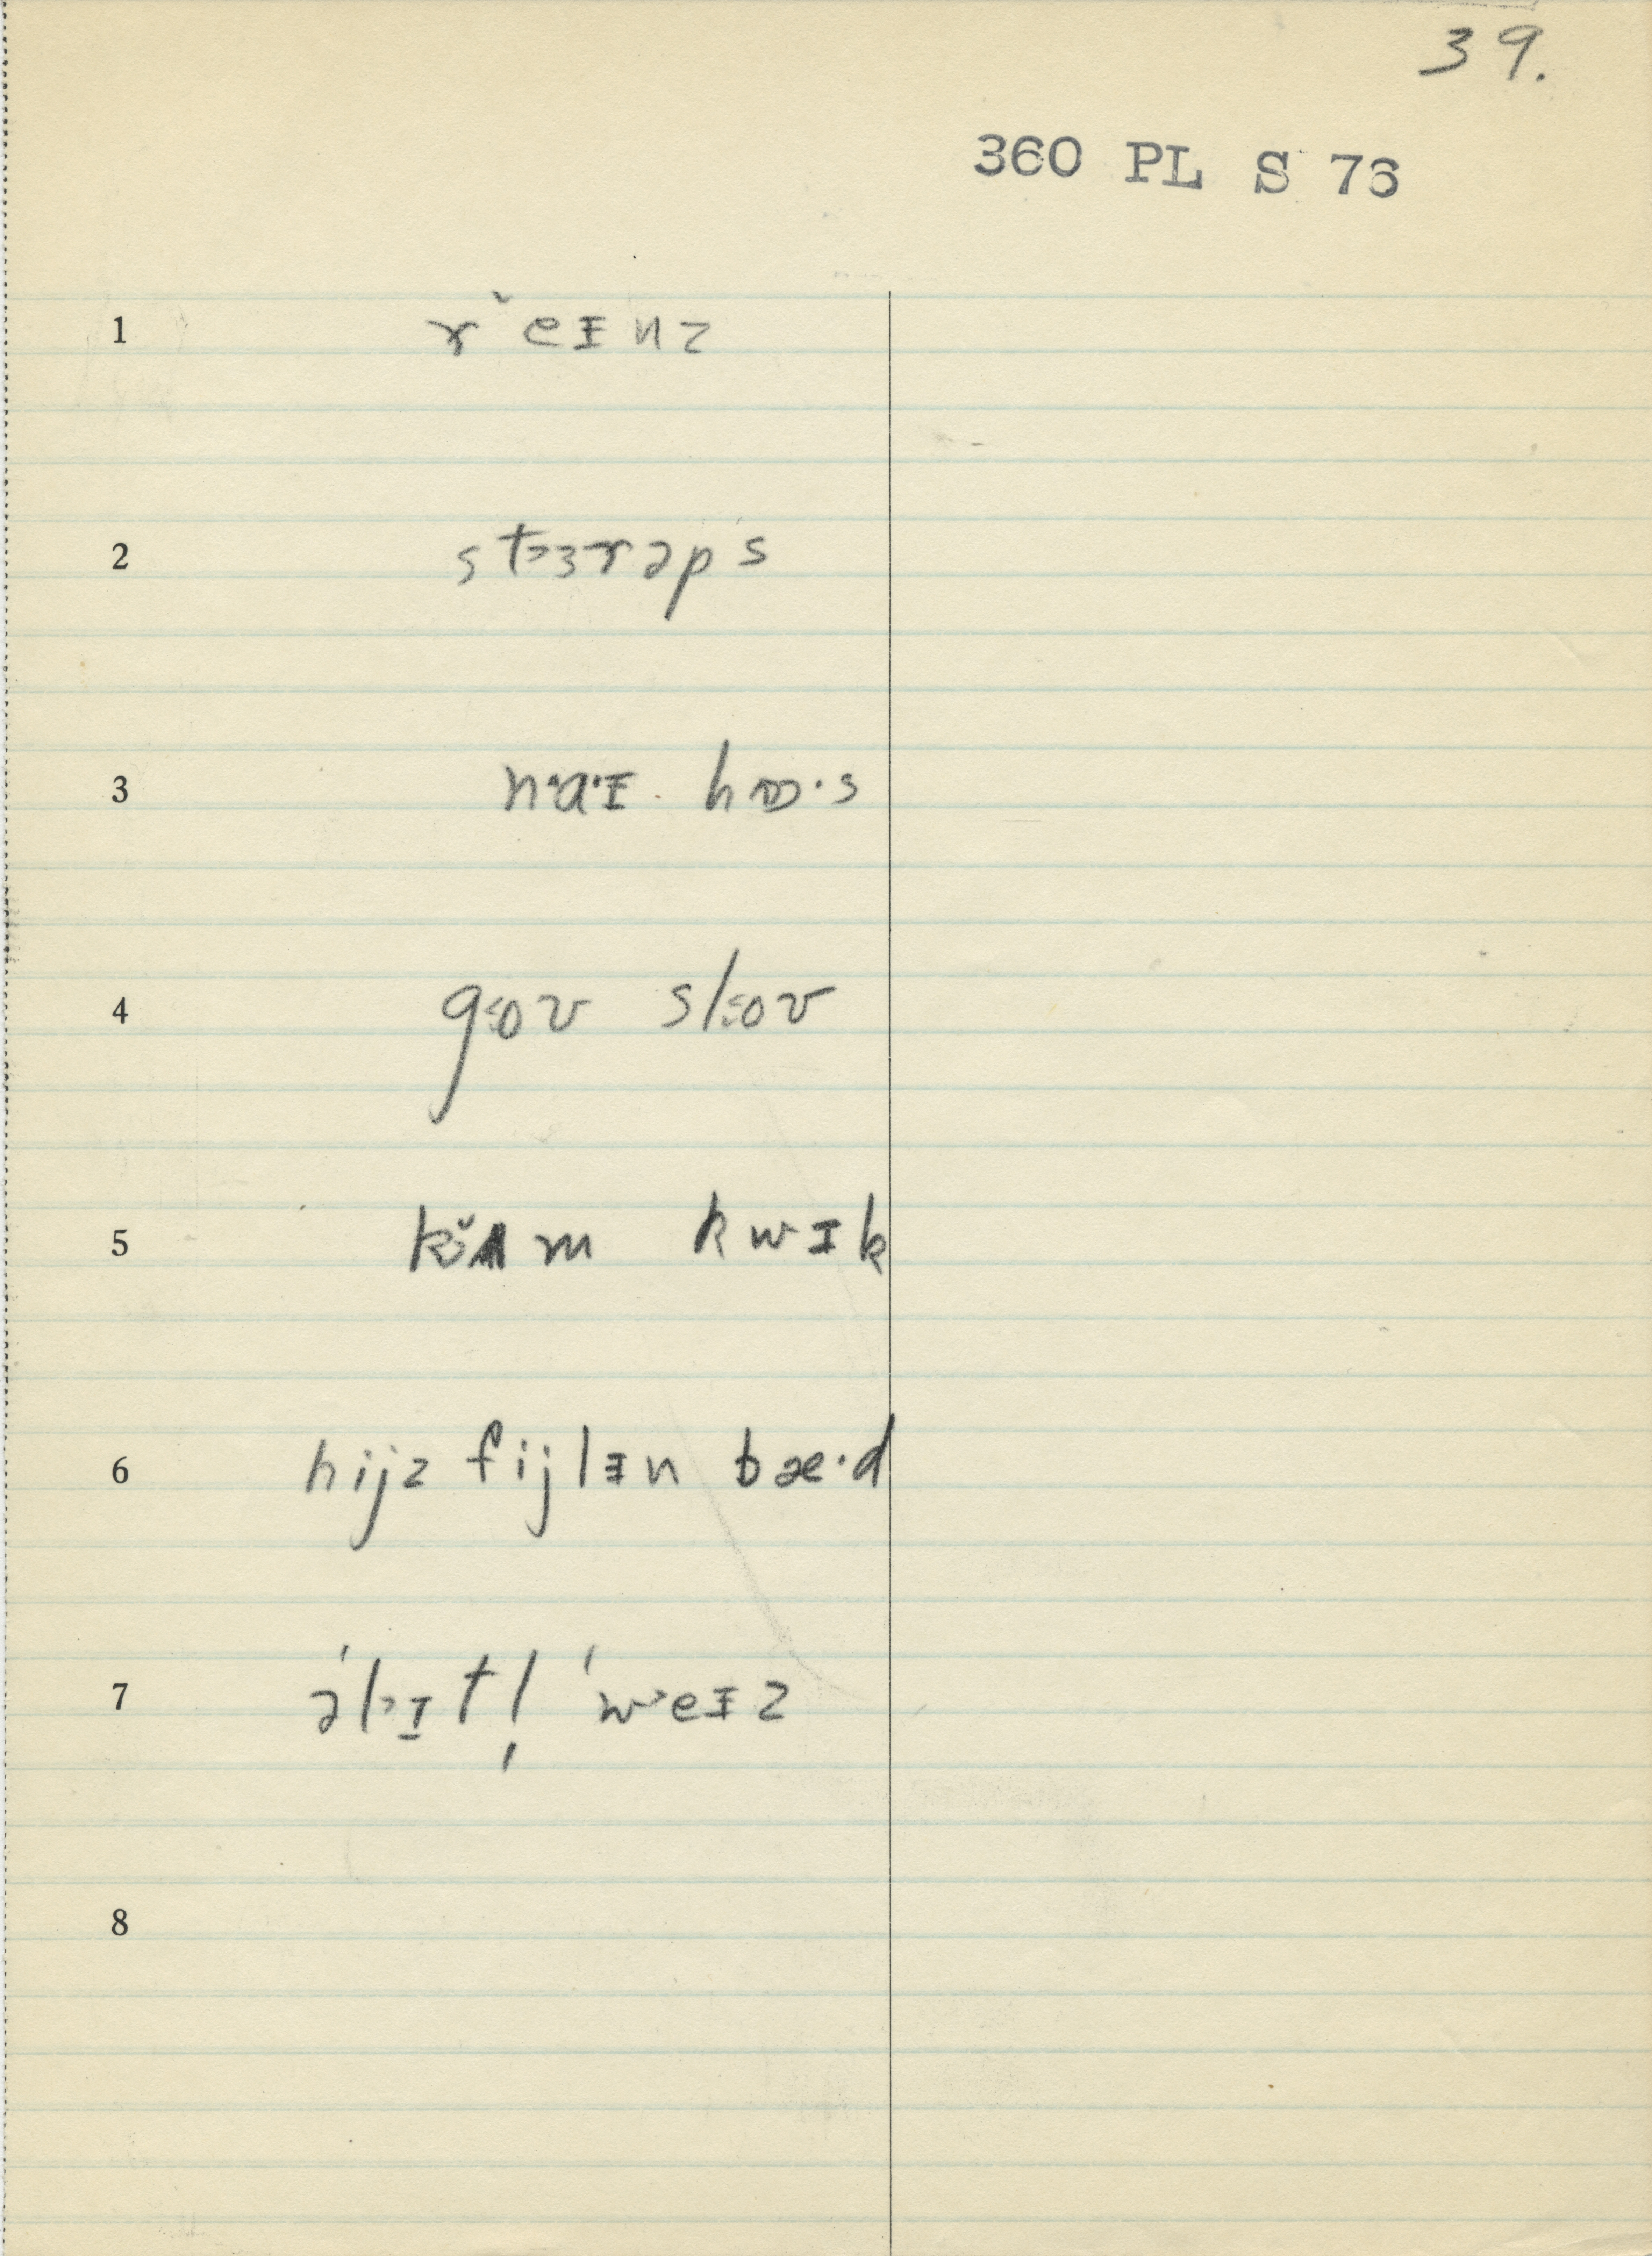 39.
360 PL S 76
1 r ̆eɪnz
2 st˃ɜrəps
3 n·a·ɪ hɒ·s
4 g˂oʊ sl˂oʊ
5 k ̆ʌm kwɪk
6 hijz fijlɪn bæ·d
7 ə'l˃ɪtl̩ 'w˃eɪz
8